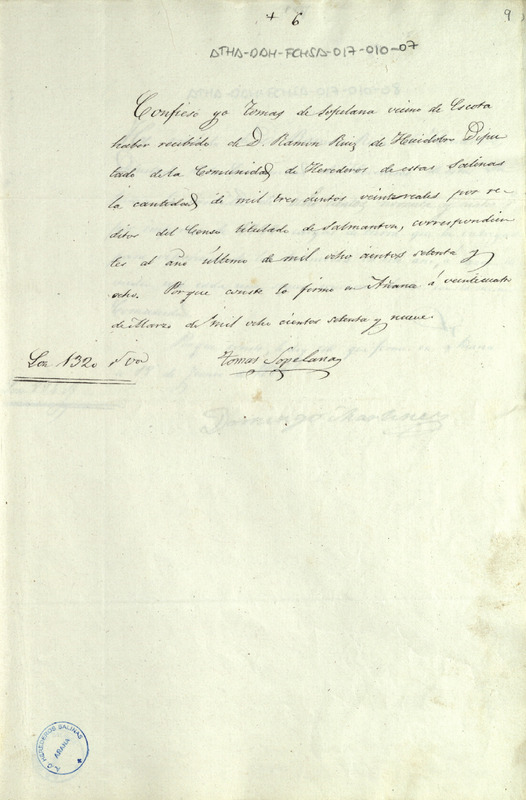 + 6
9
ATHA-DAH-FCHSA-017-010-07
Confieso yo Tomas de Sopelana vecino de Escota
haber recibido de D. Ramon Ruiz de Huidobro Dipu
tado de la Comunidad de Herederos de estas Salinas
la cantidad de mil tres cientos veinte reales por re-
ditos del Censo titulado de Salmanton, correspondien
tes al año último de mil ocho cientos setenta y
ocho. Porque conste lo firmo en Añana á veinticuatro
de Marzo de mil ocho cientos setenta y nueve
Son 1320 rs vn
Tomas Sopelana
Domingo Martinez
HEREDEROS SALINAS
AÑANA